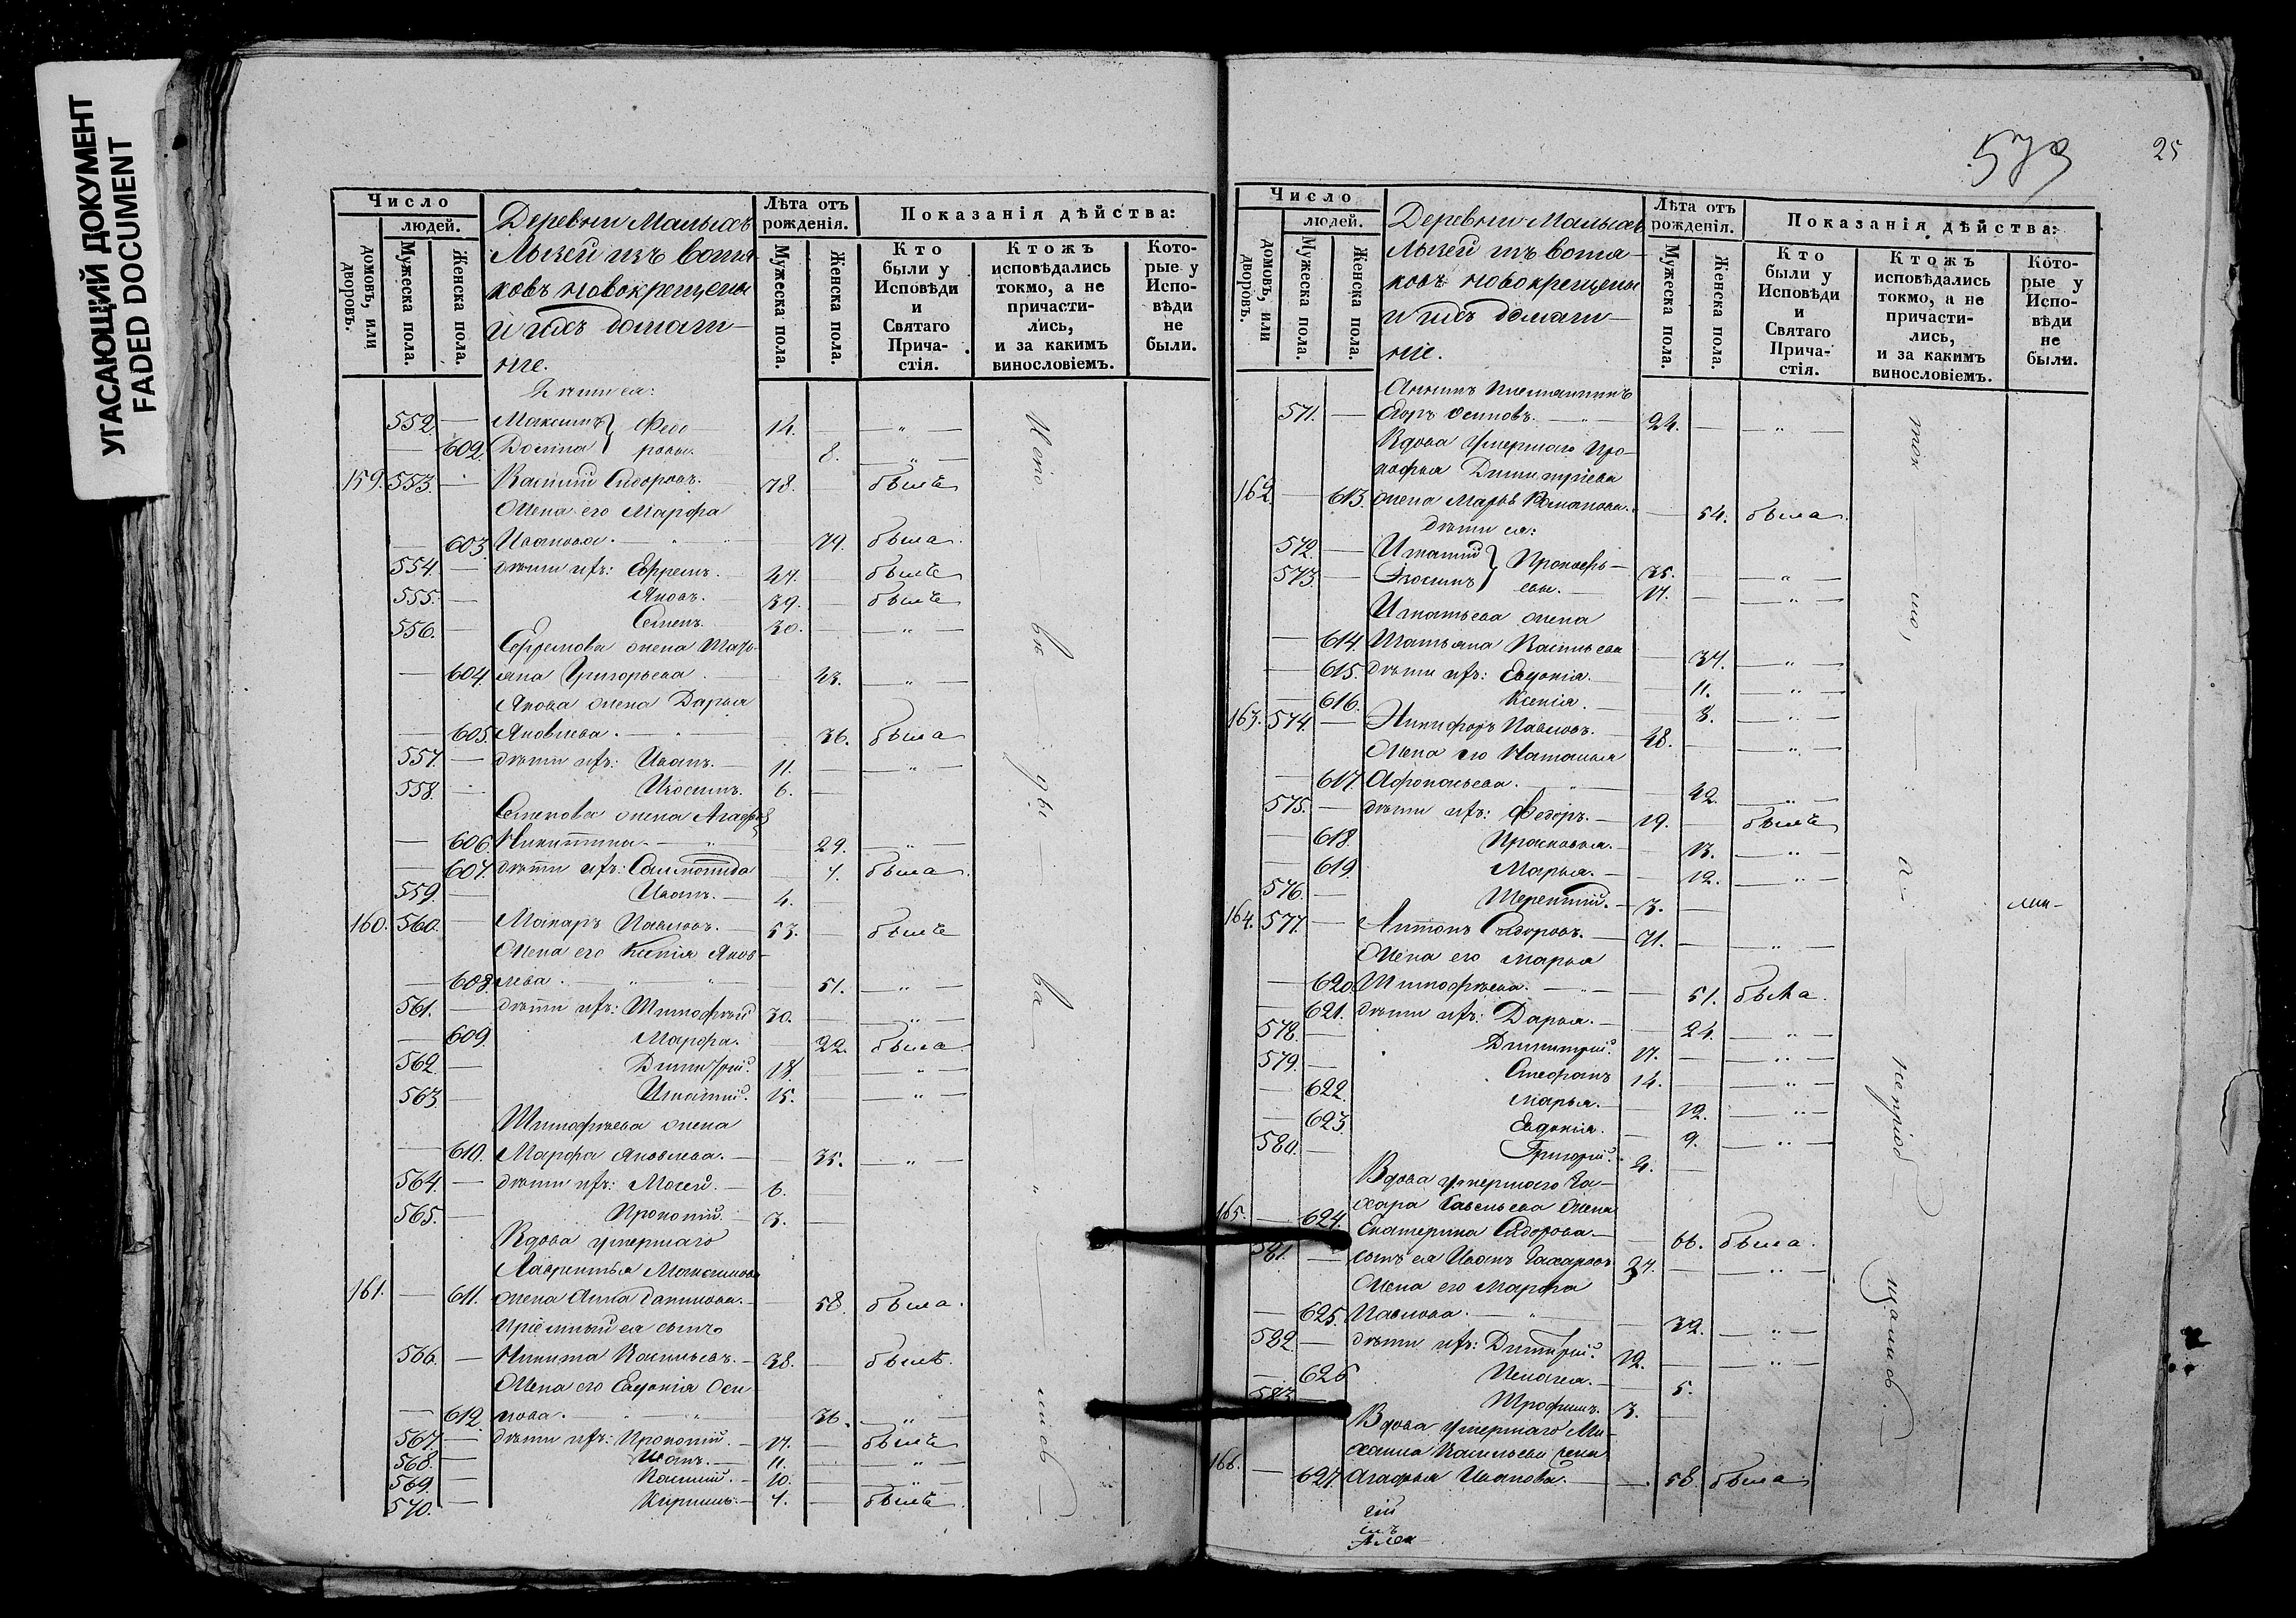 УГАСАЮЩИЙ ДОКУМЕНТ
FADED DOCUMENT
Число
людей.
домовъ, или дворовъ.
Мужеска пола.
Женска пола.
Деревни Малыхъ
Лызей изъ вотя-
ковъ новокрещены
и ихъ домаш-
ніе.
Лѣта отъ рожденія.
Мужеска пола.
Женска пола.
Показанія дѣйства:
Кто были у Исповѣди и Святаго Прича- стія.
Ктожъ исповѣдались токмо, а не причасти- лись, и за какимъ винословіемъ.
Кото- рые у Испо- вѣди не были.
Дѣти ея:
552. — Максимъ } Федо 14. — „ —
— 602. Домна } ровы. 8. — „ —
159. 553. — Василій Сидоровъ. 78. былъ
Жена его Марфа
— 603. Иванова. — „ 79. была.
554. — дѣти ихъ: Ефремъ. — 47. — былъ
555. — Яковъ. — 39. — былъ
556. — Семенъ. 30. — „ —
Ефремова жена Тать-
— 604. яна Григорьева. 43. — „ —
Якова жена Дарья
— 605. Яковлева. — „ 36. была
557. — дѣти ихъ: Иванъ. — 11. — „ —
558. — Изосимъ. 6. —
Семенова жена Агафья
— 606. Никитина. — „ — 29. — „ —
— 607. дѣти ихъ: Соломонида — 7. была.
559. — Иванъ. — 4.
160. 560. — Макаръ Павловъ. — 53. былъ
Жена его Ксенія Яков-
— 608. лева. — „ „ — 51. — „ —
561. — дѣти ихъ: Тимофѣй 30. — „ —
— 609. Марфа. — 22. была.
562. — Димитрій. 18. — „ —
563. — Игнатій. 15. — „ —
Тимофѣева жена
— 610. Марфа Яковлева. — 35. — „ —
564. — дѣти ихъ: Мосей. — 6.
565. — Прокопій. 3. —
Вдова умершаго
Лаврентья Максимова
161. — 611. жена Анна Данилова. — 58. была.
Пріемный ея сынъ
566. — Никита Васильевъ. — 38. — былъ.
Жена его Евдокія Оси
— 612. пова. — „ 36. — „ —
567. — дѣти ихъ: Прокопій. — 17. — былъ
568. — Иванъ. — 11. — „ —
569. Василій. — 10. — „ —
570. — Кирилъ. — 7. — былъ.
579
25
Число
людей.
домовъ, или дворовъ.
Мужеска пола.
Женска пола.
Деревни Малыхъ
Лызей изъ вотя-
ковъ новокрещены
и ихъ домаш-
ніе.
Лѣта отъ рожденія.
Мужеска пола.
Женска пола.
Показанія дѣйства:
Кто были у Исповѣди и Святаго Прича- стія.
Ктожъ исповѣдались токмо, а не причасти- лись, и за какимъ винословіемъ.
Кото- рые у Испо- вѣди не были.
Аннинъ племянникъ
571. — Егоръ Осиповъ. — „ — 24. — „ —
Вдова умершаго Про-
кофья Димитріева
162 — 613. жена Марѳа Романова. — 54. была.
дѣти ея:
572. — Игнатій } Прокофь- 35. — „ —
573. — Зосимъ } евы. — 17. — „ —
Игнатьева жена
— 614. Татьяна Васильева 34. — „ —
— 615. дѣти ихъ: Евдокія. — 11. — „ —
— 616. Ксенія. — 8. — „ —
163. 574. — Никифоръ Павловъ. — 48. — „ —
Жена его Наталья
— 617. Афонасьева. — „ — 42. — „ —
575. — дѣти ихъ: Федоръ. — 19. — былъ
— 618. Прасковья. — 13. — „ —
— 619. Марья. — 12. — „ —
576. — Терентій. — 3. —
164. 577. — Антонъ Сидоровъ. — 71. — „ —
Жена его Марья
— 620. Тимофѣева. — „ — 51. была.
— 621. дѣти ихъ: Дарья. — 24. — „ —
578. — Димитрій. 17. — „ —
579. — Стефанъ 14. — „ —
— 622. Марья. — 12. — „ —
— 623. Евдокія. — 9. — „ —
580. — Григорій. 4. —
Вдова умершаго За-
хара Савельева жена
165. — 624. Екатерина Сидорова. — 66. была.
581. — сынъ ея Иванъ Захаровъ 37. — „ —
Жена его Марфа
— 625. Павлова. — „ — 32. — „ —
582. — дѣти ихъ: Димитрій. 12. — „ —
— 626 Пелагея. — 5.
583. Трофимъ. 3. —
Вдова умершаго Ми-
хаила Васильева жена
166. — 627. Агафья Иванова. — 58. была